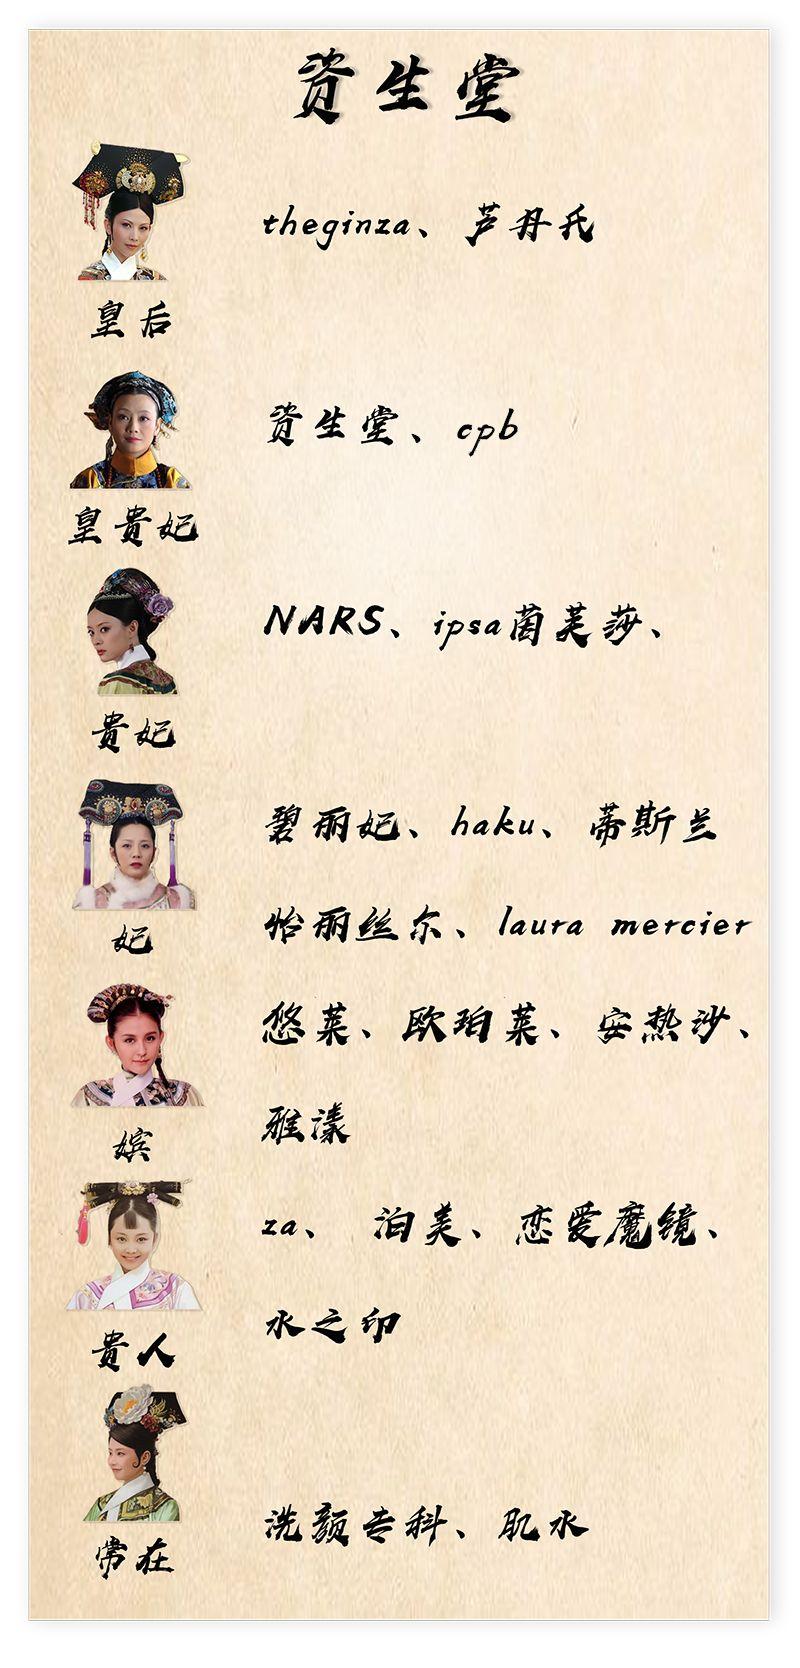 资生堂
theginza、芦丹氏
皇后
资生堂、cpb
皇贵妃
NARS、ipsa茵芙莎、
贵妃
碧丽妃、haku、蒂斯兰
怡丽丝尔、laura mercier
妃
悠莱、欧珀莱、安热沙、
雅漾
嫔
za、 泊美、恋爱魔镜、
水之印
贵人
洗颜专科、肌水
常在